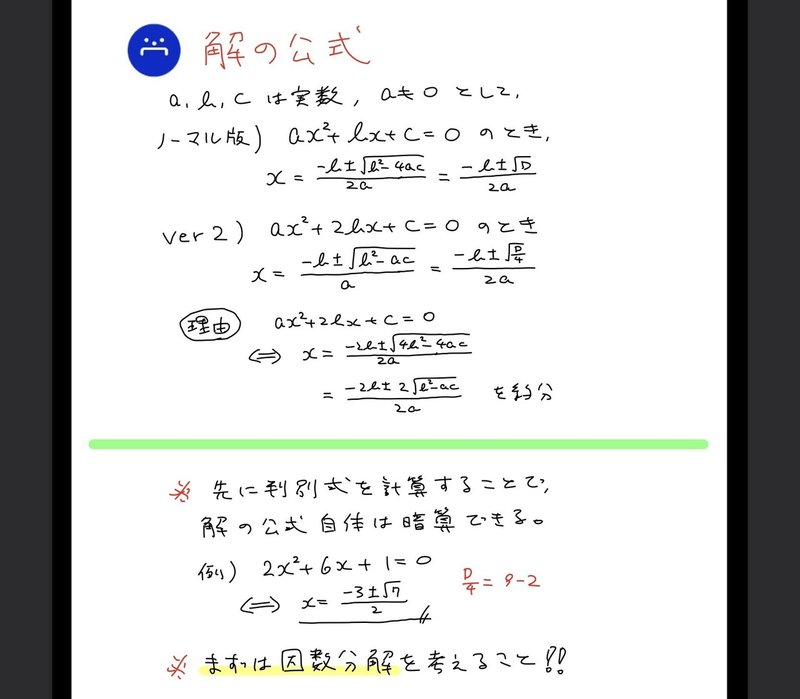 解の公式
a, b, c は実数, a≠0 として,
ノーマル版) ax²+bx+c=0 のとき,
x = (-b±√(b²-4ac))/2a = (-b±√D)/2a
ver 2) ax²+2bx+c=0 のとき
x = (-b±√(b²-ac))/a = (-b±√(D/4))/2a
理由 ax²+2bx+c=0
⇔ x = (-2b±√(4b²-4ac))/2a
= (-2b±2√(b²-ac))/2a を約分
※ 先に判別式を計算することで,
解の公式自体は暗算できる。
例) 2x²+6x+1=0 D/4 = 9-2
⇔ x = (-3±√7)/2
※ まずは因数分解を考えること!!